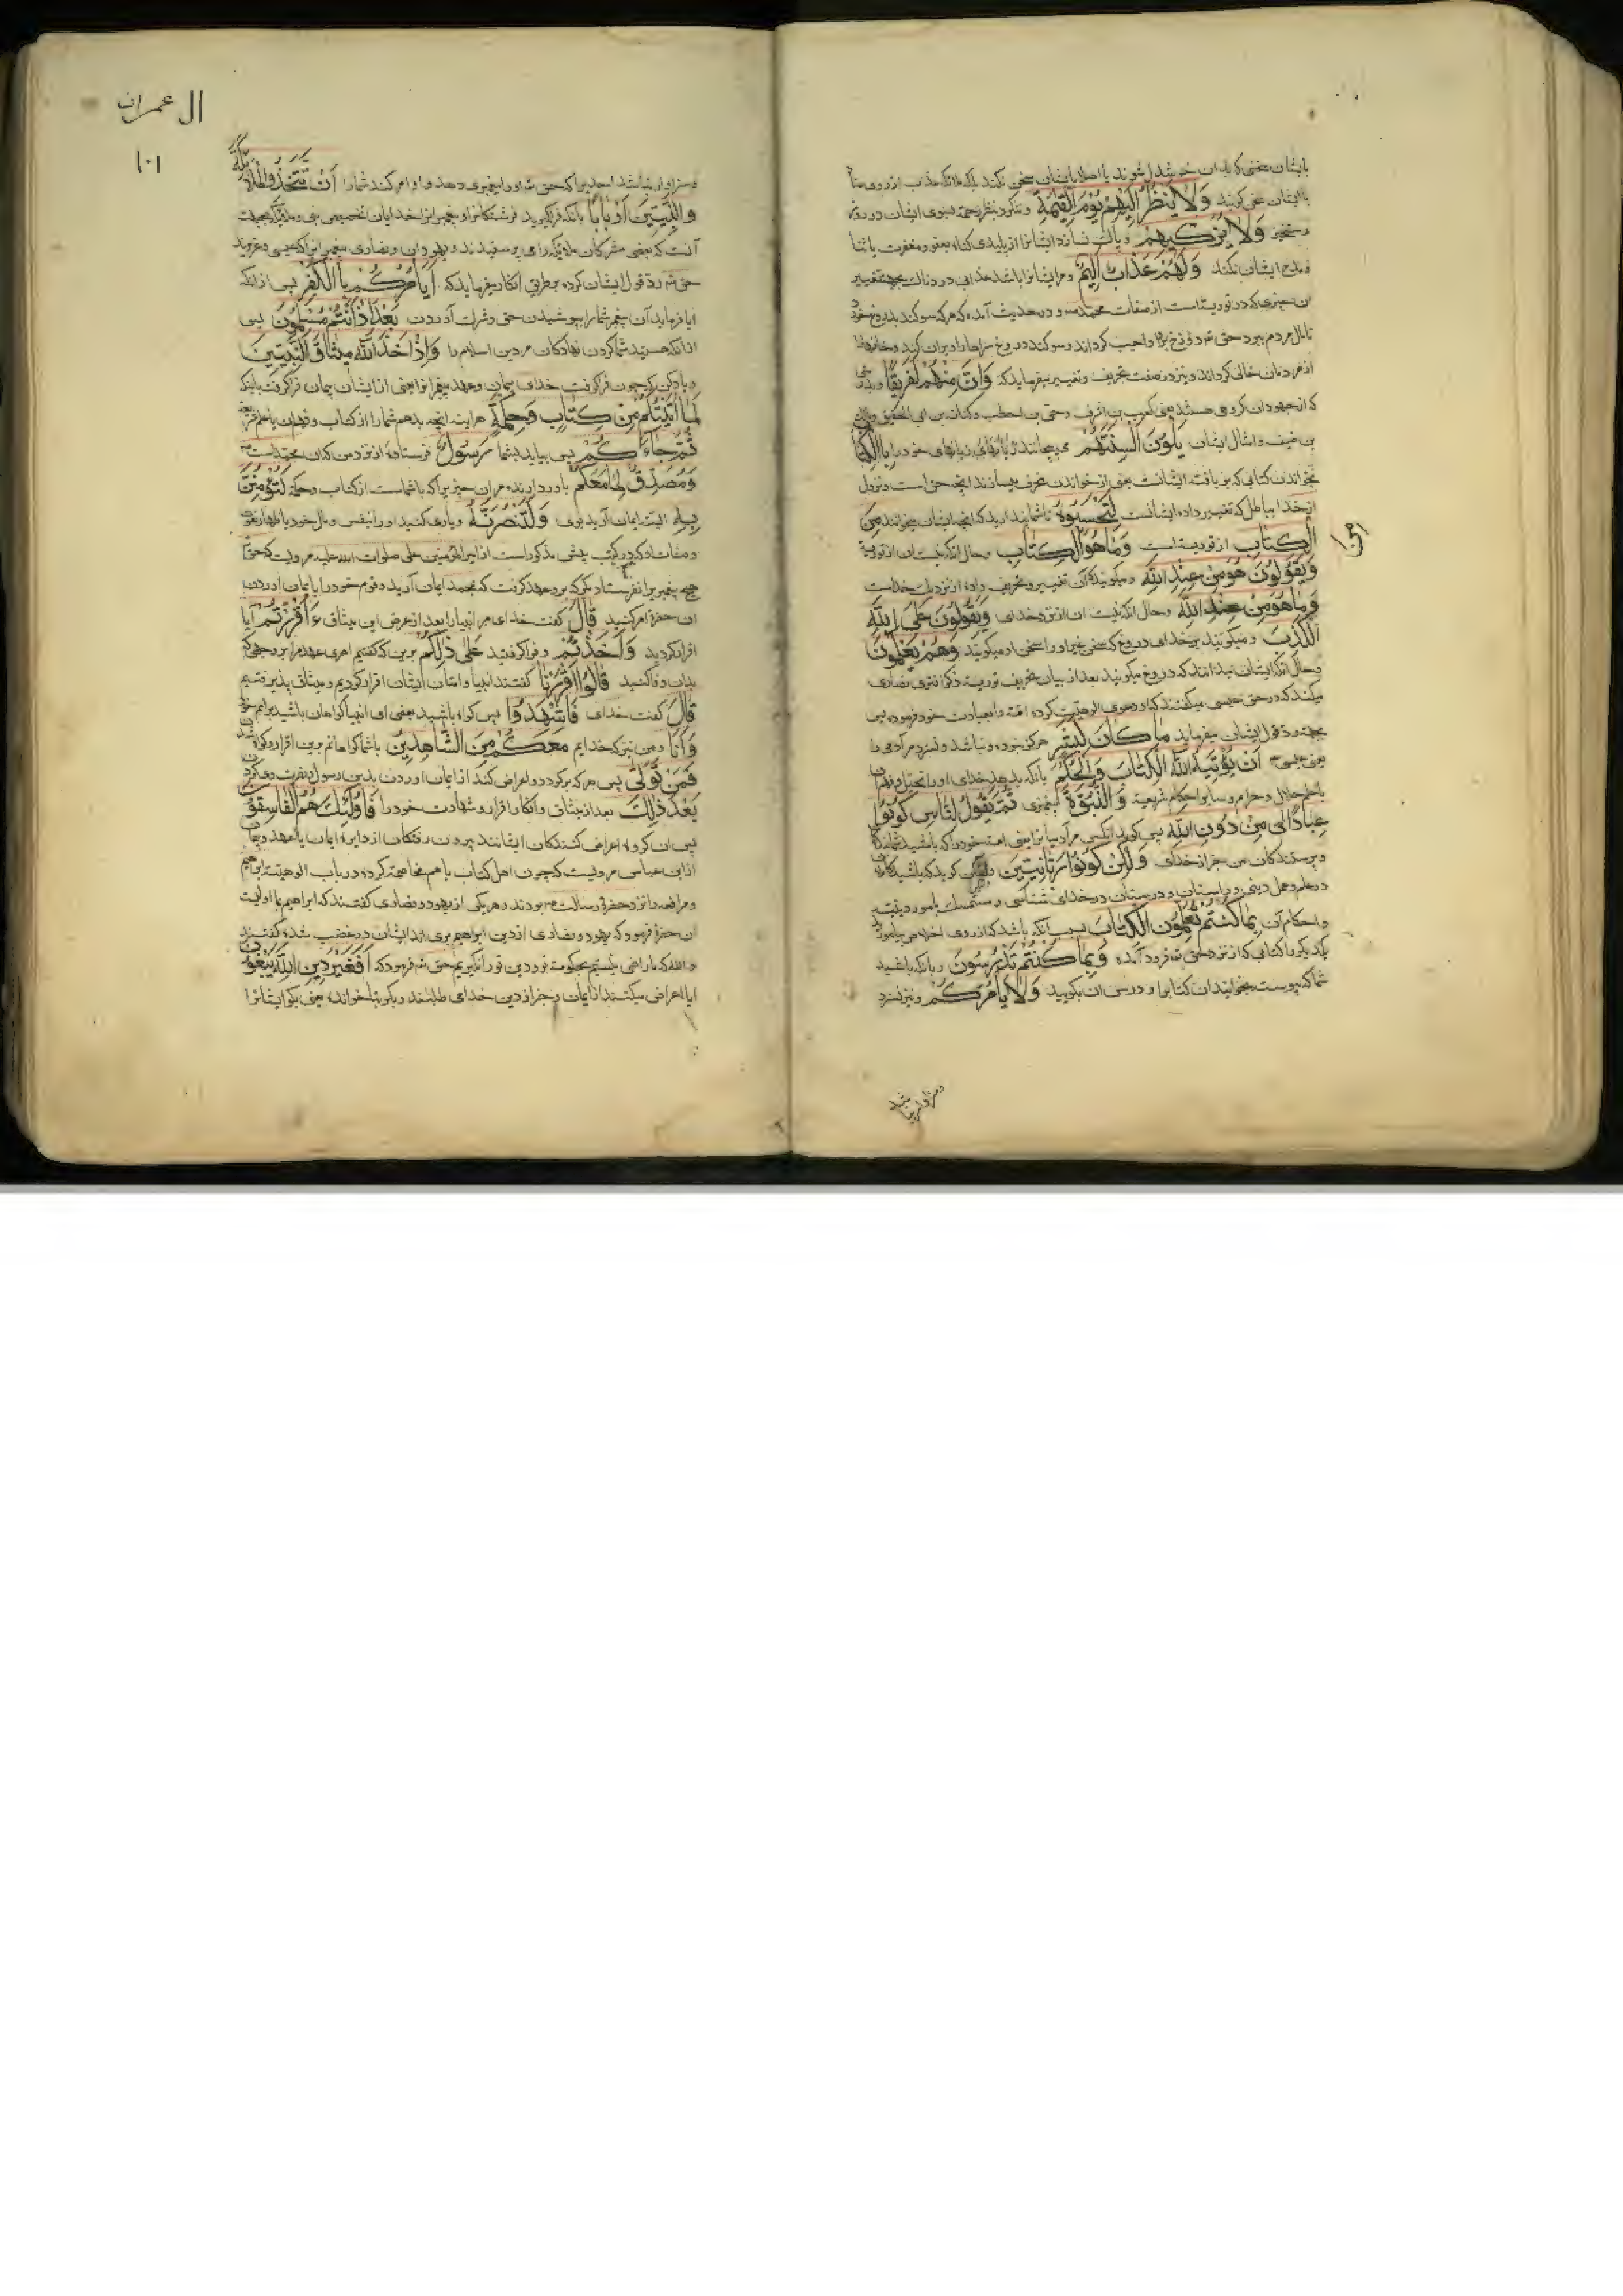 بایشان سخنی که بدان خوشدل شوند یا اصلا بایشان سخن نکند بلکه ملائکه عذاب از روی
باایشان سخن کویند وَلَا يَنْظُرُ اِلَيْهِمْ يَوْمَ الْقِيٰمَةِ وننکرد بنظر رحمة بسوی ایشان در روز
رستخیز وَلَا يُزَكِّيهِمْ وپاک نسازد ایشانرا از پلیدی کناه بعفو ومغفرت یا ثنا
ومدح ایشان نکند وَلَهُمْ عَذَابٌ اَلِيمٌ ومر ایشانرا باشد عذابی دردناک بجهة تغییر
ان چیزی که در توریة است از صفات محمد ودر حدیث آمده که هر که سوکند بدروغ خورد
تا مال مردم ببرد حق دوزخ برو واجب کرداند وسوکند دروغ سراها را ویران کند وخانها
از مردمان خالی کرداند ونیز در صفت تحریف وتغییر میفرماید که وَاِنَّ مِنْهُمْ لَفَرِيقًا
که از جهودان کروهی هستند یعنی کعب بن اشرف وحی بن اخطب وکنانة بن ابی الحقیق ومالک
بن ضیف وامثال ایشان يَلْوُنَ اَلْسِنَتَهُمْ می پیچانند زبانهای خود را بِالْكِتَابِ
بخواندن کتابی که بر بافته ایشانست یعنی از خواندن محرف میسازند آنچه حق است ونزول
از خدا بباطل که تغییر داده ایشانست لِتَحْسَبُوهُ تا شما پندارید که آنچه ایشان میخوانند مِنَ
الْكِتَابِ از توریة است وَمَا هُوَ مِنَ الْكِتَابِ وحال آنکه نیست ان از توریة
وَيَقُولُونَ هُوَ مِنْ عِنْدِ اللّٰهِ ومیکویند که آن تغییر وتحریف داده از نزدیک خداست
وَمَا هُوَ مِنْ عِنْدِ اللّٰهِ وحال آنکه نیست ان از نزد خدای وَيَقُولُونَ عَلَى اللّٰهِ
الْكَذِبَ ومیکویند بر خدای دروغ که سخن غیر او را سخن او میکویند وَهُمْ يَعْلَمُونَ
وحال آنکه ایشان میدانند که دروغ میکویند بعد از بیان تحریف توریة ذکر افتری نصاری
میکند که در حق عیسی میکفتند که او دعوی الوهیت کرده امة را بعبادت خود فرموده پس
بجهة رد قول ایشان میفرماید مَا كَانَ لِبَشَرٍ هرکز نبوده ونباشد ونسزد مر آدمی را
یعنی عیسی اَنْ يُؤْتِيَهُ اللّٰهُ الْكِتَابَ وَالْحُكْمَ بآنکه بدهد خدای او را انجیل وفهم
یا علم حلال وحرام وسایر احکام شریعة وَالنُّبُوَّةَ پیغمبری ثُمَّ يَقُولَ لِلنَّاسِ كُونُوا
عِبَادًا لِي مِنْ دُونِ اللّٰهِ پس کوید آنکس مر آدمیانرا یعنی امت خود را که باشید بندکان
وپرستندکان من جز از خدای وَلٰكِنْ كُونُوا رَبَّانِيِّينَ ولیکن کوید که باشید
در علم وعمل دینی در خدای شناسی ومتمسک بامور دینیه
واحکام آن بِمَا كُنْتُمْ تُعَلِّمُونَ الْكِتَابَ بسبب آنکه باشد که از روی اخلاص بیاموزید
یکدیکر را کتابی که از نزد حق فرود آمده وَبِمَا كُنْتُمْ تَدْرُسُونَ وبآنکه باشید
شما که پیوسته بخوانید ان کتابرا ودرس ان بکویید وَلَا يَأْمُرَكُمْ ونیز نسزد
وسزاوار نباشد
ال عمران
۱۰۱
وسزاوار نباشد احدی را که حق او را پیغمبری دهد واو امر کند شما را اَنْ تَتَّخِذُوا الْمَلٰئِكَةَ
وَالنَّبِيِّينَ اَرْبَابًا بآنکه فراکیرید فرشتکانرا وپیغمبرانرا خدایان تخصیص نبی وملائکه بجهت
آنست که بعضی مشرکان ملائکه را می پرستیدند ویهودان ونصاری پیغمبرانرا که عیسی وعزیرند
حق رد قول ایشان کرده بطریق انکار میفرماید که اَيَأْمُرُكُمْ بِالْكُفْرِ یعنی از آنکه
ایا فرماید آن پیغمبر شما را بپوشیدن حق وشرک آوردن بَعْدَ اِذْ اَنْتُمْ مُسْلِمُونَ پس
از آنکه هستید شما کردن نهادکان مر دین اسلام را وَاِذْ اَخَذَ اللّٰهُ مِيثَاقَ النَّبِيِّينَ
ویاد کن که چون فراکرفت خدای پیمان وعهد پیغمبرانرا یعنی از ایشان پیمان فراکرفت بآنکه
لَمَا اٰتَيْتُكُمْ مِنْ كِتَابٍ وَحِكْمَةٍ هر اینه آنچه بدهم شما را از کتاب وفهم ان یا علم
ثُمَّ جَاءَكُمْ پس بیاید بشما رَسُولٌ فرستاده از نزد من که ان محمد است
وَمُصَدِّقٌ لِمَا مَعَكُمْ باوردارنده مر ان چیزیرا که با شماست از کتاب وحکمة لَتُؤْمِنُنَّ
بِهِ البته ایمان آرید بوی وَلَتَنْصُرُنَّهُ ویاری کنید او را بنفس ومال خود یا باظهار نعت
وصفات او که در کتب پیشین مذکور است از امیر المؤمنین علی صلوات الله علیه مرویست که حق
هیچ پیغمبریرا نفرستاد مکر که برو عهد کرفت که بمحمد ایمان آرید وقوم خود را بایمان اوردن
ان حضرة امر کنید قَالَ کفت خدای مر انبیا را بعد از عرض این میثاق ءَاَقْرَرْتُمْ آیا
اقرار کردید وَاَخَذْتُمْ وفرا کرفتید عَلٰى ذٰلِكُمْ برین که کفتیم اصری عهد مرا بر وجهی که
بدان وفا کنید قَالُوا اَقْرَرْنَا کفتند انبیا وامتان ایشان اقرار کردیم ومیثاق پذیرفتیم
قَالَ کفت خدای فَاشْهَدُوا پس کواه باشید یعنی ای انبیا کواهان باشید بر امم خود
وَاَنَا ومن نیز که خدایم مَعَكُمْ مِنَ الشَّاهِدِينَ باشما کواهانم برین اقرار
فَمَنْ تَوَلّٰى پس هر که برکردد واعراض کند از ایمان اوردن بدین رسول ونصرت وی کردن
بَعْدَ ذٰلِكَ بعد از میثاق وانکار اقرار وشهادت خود را فَاُولٰئِكَ هُمُ الْفَاسِقُونَ
پس ان کروه اعراض کنندکان ایشانند بیرون رفتکان از دایره ایمان یا عهد وپیمان
از ابن عباس مرویست که چون اهل کتاب باهم مخاصمه کرده در باب الوهیت ابراهیم
ومرافعه را نزد حضرة رسالت بردند وهر یکی از یهود ونصاری کفتند که ابراهیم بما اولیست
ان حضرة فرمود که یهود ونصاری از دین ابراهیم بری اند ایشان در غضب شده کفتند
والله که ما راضی نیستیم بحکومة تو ودین تو را نکیریم حق فرمود که اَفَغَيْرَ دِينِ اللّٰهِ يَبْغُونَ
ایا اعراض میکنند از ایمان وجز از دین خدای طلبند ویبغون بتا خوانده یعنی بکو ایشانرا